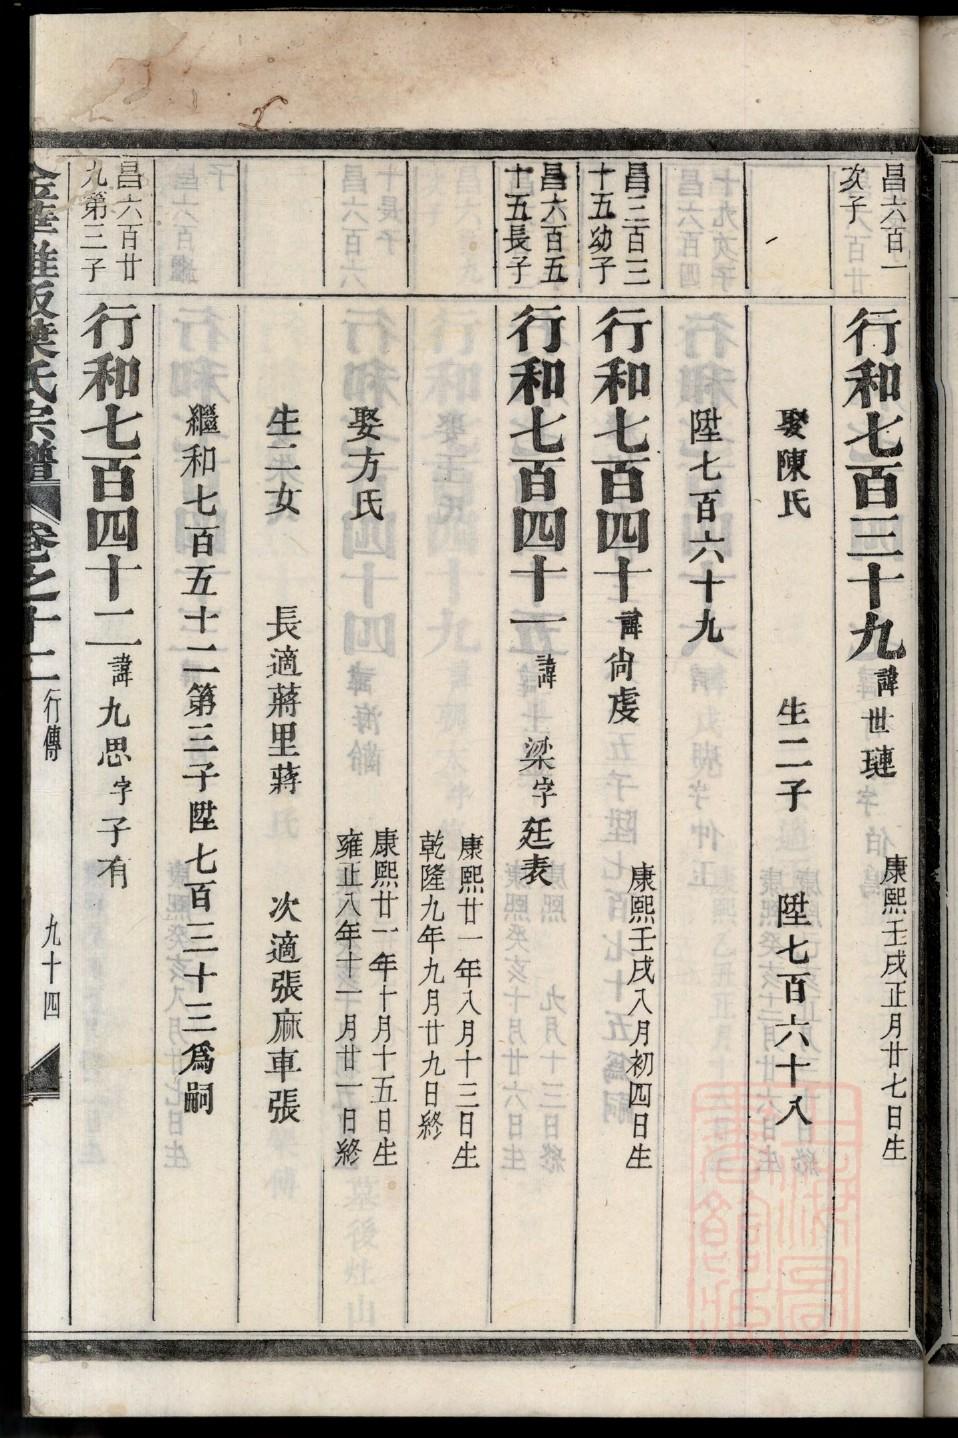 昌六百一
次子
行和七百三十九 諱世璉
康熙壬戌正月廿七日生
娶陳氏 生二子 陞七百六十八
陞七百六十九
昌三百三
十五幼子
行和七百四十 諱尚虔
康熙壬戌八月初四日生
昌六百五
十五長子
行和七百四十一 諱梁字廷表
康熙廿一年八月十三日生
乾隆九年九月廿九日終
娶方氏
康熙廿一年十月十五日生
雍正八年十一月廿一日終
生二女 長適蔣里蔣 次適張麻車張
繼和七百五十二第三子陞七百三十三爲嗣
昌六百廿
九第三子
行和七百四十二 諱九思字子有
葉氏宗譜 卷之十二 行傳 九十四